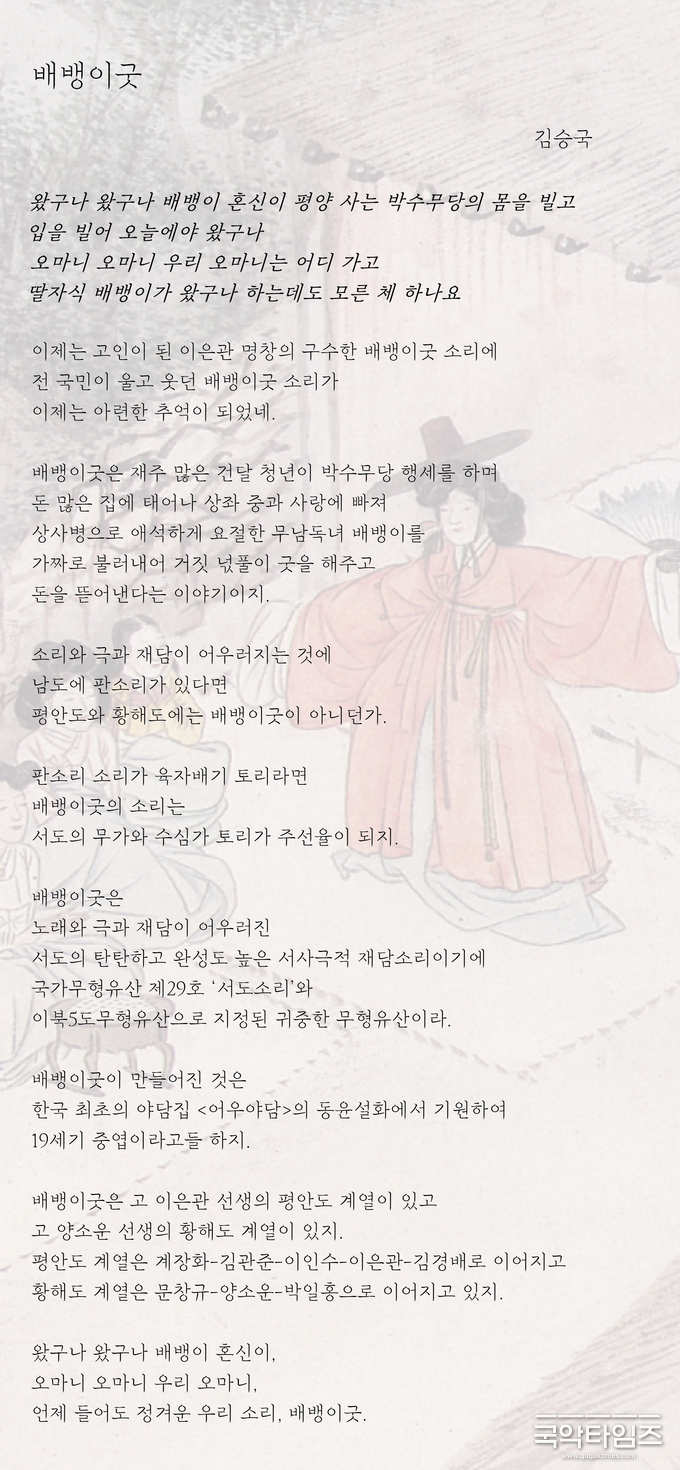 배뱅이굿
김승국
왔구나 왔구나 배뱅이 혼신이 평양 사는 박수무당의 몸을 빌고
입을 빌어 오늘에야 왔구나
오마니 오마니 우리 오마니는 어디 가고
딸자식 배뱅이가 왔구나 하는데도 모른 체 하나요
이제는 고인이 된 이은관 명창의 구수한 배뱅이굿 소리에
전 국민이 울고 웃던 배뱅이굿 소리가
이제는 아련한 추억이 되었네.
배뱅이굿은 재주 많은 건달 청년이 박수무당 행세를 하며
돈 많은 집에 태어나 상좌 중과 사랑에 빠져
상사병으로 애석하게 요절한 무남독녀 배뱅이를
가짜로 불러내어 거짓 넋풀이 굿을 해주고
돈을 뜯어낸다는 이야기이지.
소리와 극과 재담이 어우러지는 것에
남도에 판소리가 있다면
평안도와 황해도에는 배뱅이굿이 아니던가.
판소리 소리가 육자배기 토리라면
배뱅이굿의 소리는
서도의 무가와 수심가 토리가 주선율이 되지.
배뱅이굿은
노래와 극과 재담이 어우러진
서도의 탄탄하고 완성도 높은 서사극적 재담소리이기에
국가무형유산 제29호 ‘서도소리’와
이북5도무형유산으로 지정된 귀중한 무형유산이라.
배뱅이굿이 만들어진 것은
한국 최초의 야담집 <어우야담>의 동윤설화에서 기원하여
19세기 중엽이라고들 하지.
배뱅이굿은 고 이은관 선생의 평안도 계열이 있고
고 양소운 선생의 황해도 계열이 있지.
평안도 계열은 계장화-김관준-이인수-이은관-김경배로 이어지고
황해도 계열은 문창규-양소운-박일흥으로 이어지고 있지.
왔구나 왔구나 배뱅이 혼신이,
오마니 오마니 우리 오마니,
언제 들어도 정겨운 우리 소리, 배뱅이굿.
국악타임즈
www.gugaktimes.com